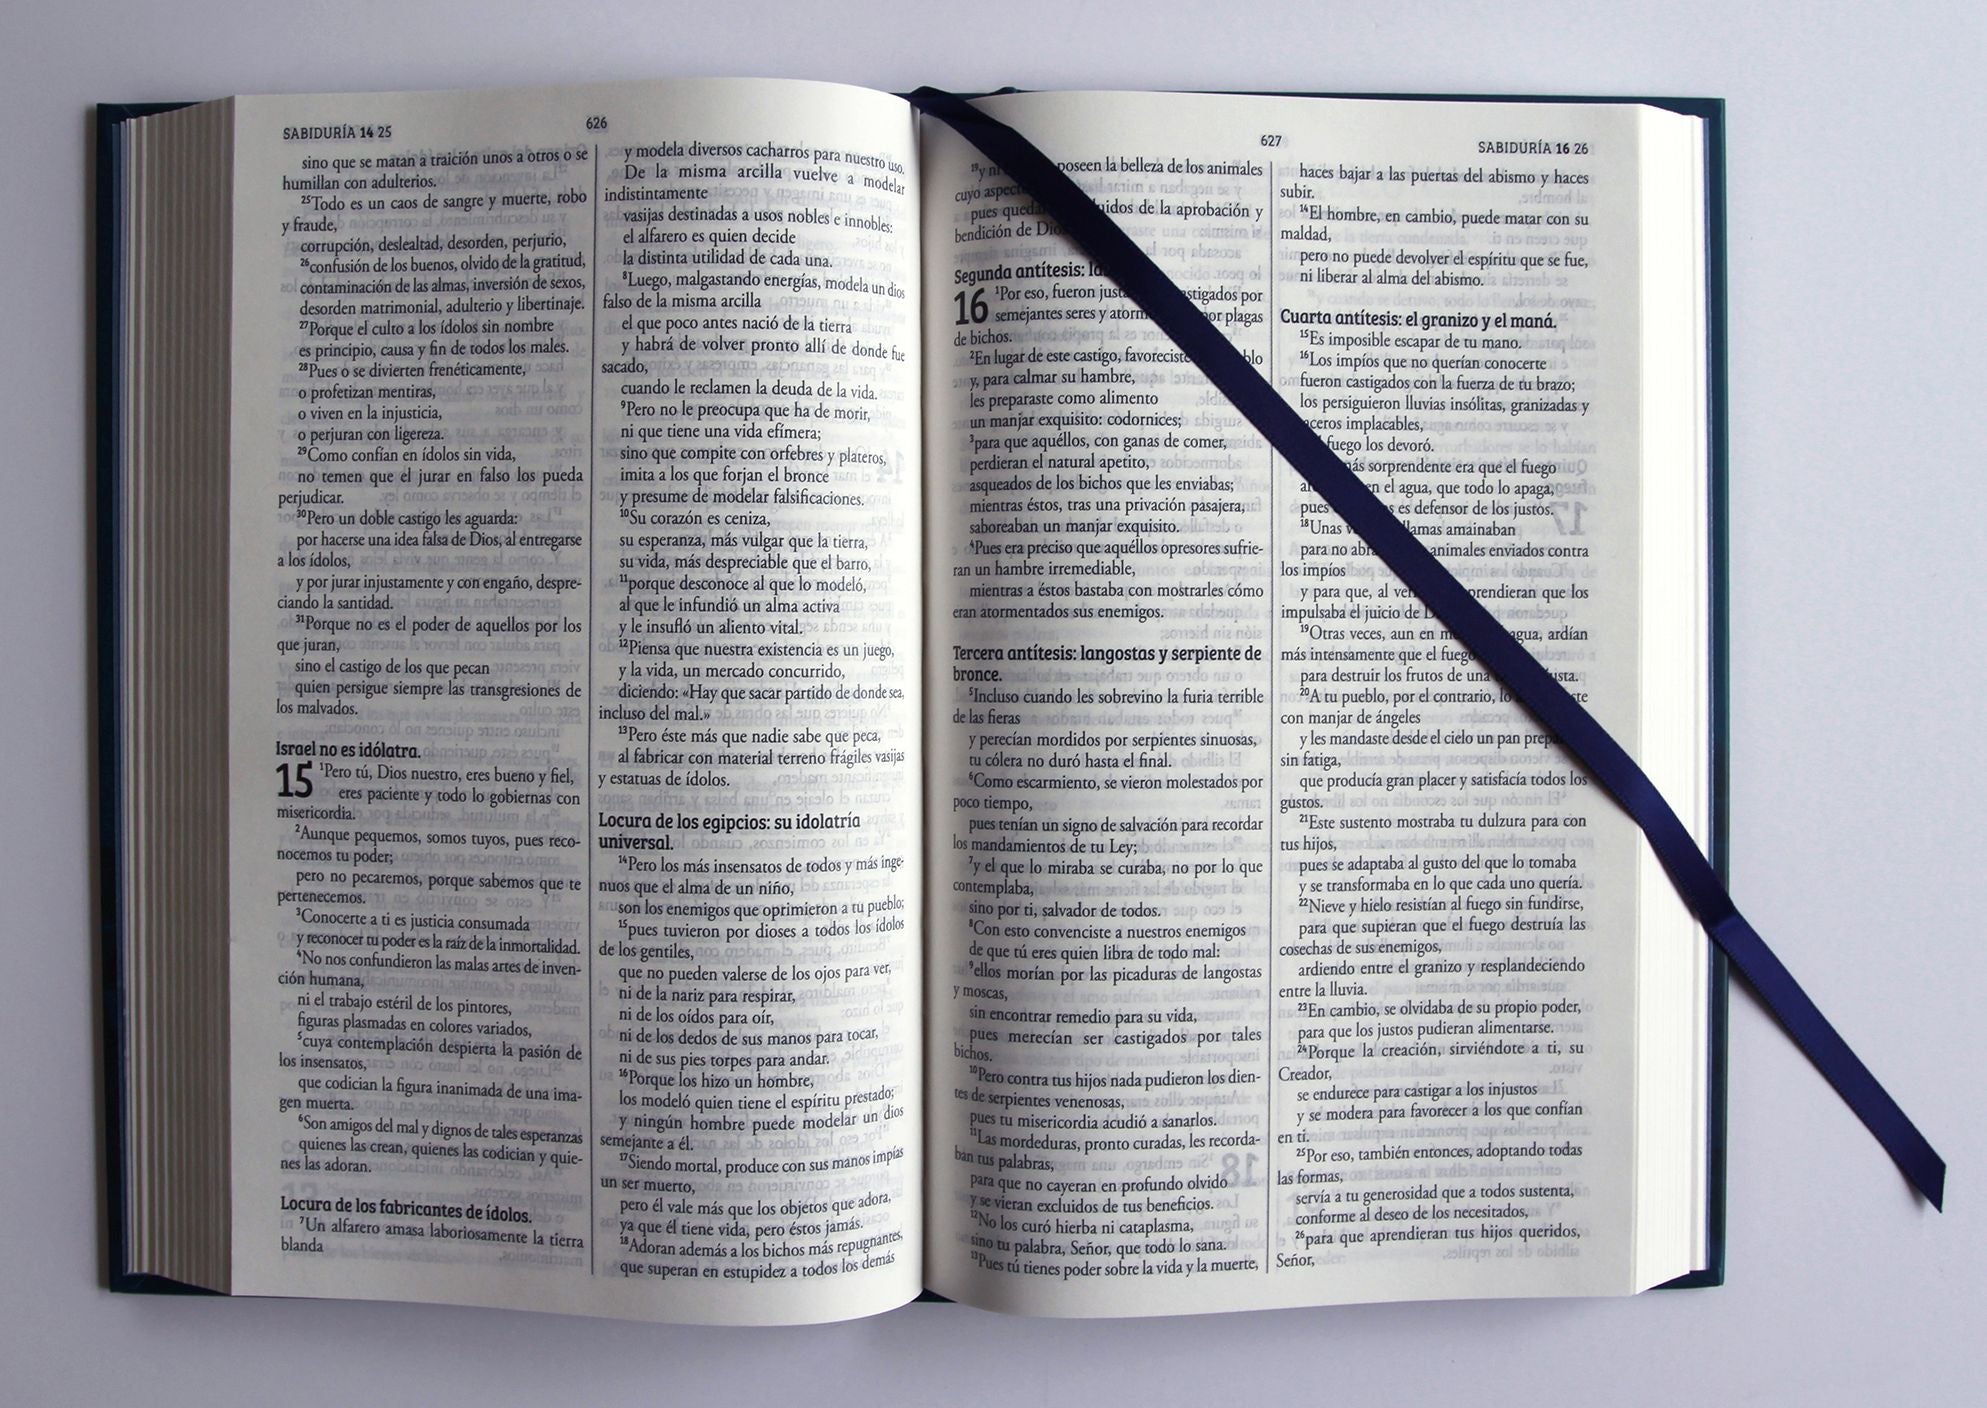 SABIDURÍA 14 25
626
sino que se matan a traición unos a otros o se
humillan con adulterios.
25Todo es un caos de sangre y muerte, robo
y fraude,
corrupción, deslealtad, desorden, perjurio,
26confusión de los buenos, olvido de la gratitud,
contaminación de las almas, inversión de sexos,
desorden matrimonial, adulterio y libertinaje.
27Porque el culto a los ídolos sin nombre
es principio, causa y fin de todos los males.
28Pues o se divierten frenéticamente,
o profetizan mentiras,
o viven en la injusticia,
o perjuran con ligereza.
29Como confían en ídolos sin vida,
no temen que el jurar en falso los pueda
perjudicar.
30Pero un doble castigo les aguarda:
por hacerse una idea falsa de Dios, al entregarse
a los ídolos,
y por jurar injustamente y con engaño, despre-
ciando la santidad.
31Porque no es el poder de aquellos por los
que juran,
sino el castigo de los que pecan
quien persigue siempre las transgresiones de
los malvados.
Israel no es idólatra.
15 1Pero tú, Dios nuestro, eres bueno y fiel,
eres paciente y todo lo gobiernas con
misericordia.
2Aunque pequemos, somos tuyos, pues reco-
nocemos tu poder;
pero no pecaremos, porque sabemos que te
pertenecemos.
3Conocerte a ti es justicia consumada
y reconocer tu poder es la raíz de la inmortalidad.
4No nos confundieron las malas artes de inven-
ción humana,
ni el trabajo estéril de los pintores,
figuras plasmadas en colores variados,
5cuya contemplación despierta la pasión de
los insensatos,
que codician la figura inanimada de una ima-
gen muerta.
6Son amigos del mal y dignos de tales esperanzas
quienes las crean, quienes las codician y quie-
nes las adoran.
Locura de los fabricantes de ídolos.
7Un alfarero amasa laboriosamente la tierra
blanda
y modela diversos cacharros para nuestro uso.
De la misma arcilla vuelve a modelar
indistintamente
vasijas destinadas a usos nobles e innobles:
el alfarero es quien decide
la distinta utilidad de cada una.
8Luego, malgastando energías, modela un dios
falso de la misma arcilla
el que poco antes nació de la tierra
y habrá de volver pronto allí de donde fue
sacado,
cuando le reclamen la deuda de la vida.
9Pero no le preocupa que ha de morir,
ni que tiene una vida efímera;
sino que compite con orfebres y plateros,
imita a los que forjan el bronce
y presume de modelar falsificaciones.
10Su corazón es ceniza,
su esperanza, más vulgar que la tierra,
su vida, más despreciable que el barro,
11porque desconoce al que lo modeló,
al que le infundió un alma activa
y le insufló un aliento vital.
12Piensa que nuestra existencia es un juego,
y la vida, un mercado concurrido,
diciendo: «Hay que sacar partido de donde sea,
incluso del mal.»
13Pero éste más que nadie sabe que peca,
al fabricar con material terreno frágiles vasijas
y estatuas de ídolos.
Locura de los egipcios: su idolatría
universal.
14Pero los más insensatos de todos y más inge-
nuos que el alma de un niño,
son los enemigos que oprimieron a tu pueblo;
15pues tuvieron por dioses a todos los ídolos
de los gentiles,
que no pueden valerse de los ojos para ver,
ni de la nariz para respirar,
ni de los oídos para oír,
ni de los dedos de sus manos para tocar,
ni de sus pies torpes para andar.
16Porque los hizo un hombre,
los modeló quien tiene el espíritu prestado;
y ningún hombre puede modelar un dios
semejante a él.
17Siendo mortal, produce con sus manos impías
un ser muerto,
pero él vale más que los objetos que adora,
ya que él tiene vida, pero éstos jamás.
18Adoran además a los bichos más repugnantes,
que superan en estupidez a todos los demás
627
SABIDURÍA 16 26
19y ni poseen la belleza de los animales
cuyo
pues de la aprobación y
bendición de Dios
Segunda antítesis:
16 1Por eso, fueron por
semejantes seres y por plagas
de bichos.
2En lugar de este castigo,
y, para calmar su hambre,
les preparaste como alimento
un manjar exquisito: codornices;
3para que aquéllos, con ganas de comer,
perdieran el natural apetito,
asqueados de los bichos que les enviabas;
mientras éstos, tras una privación pasajera,
saboreaban un manjar exquisito.
4Pues era preciso que aquéllos opresores sufrie-
ran un hambre irremediable,
mientras a éstos bastaba con mostrarles cómo
eran atormentados sus enemigos.
Tercera antítesis: langostas y serpiente de
bronce.
5Incluso cuando les sobrevino la furia terrible
de las fieras
y perecían mordidos por serpientes sinuosas,
tu cólera no duró hasta el final.
6Como escarmiento, se vieron molestados por
poco tiempo,
pues tenían un signo de salvación para recordar
los mandamientos de tu Ley;
7y el que lo miraba se curaba, no por lo que
contemplaba,
sino por ti, salvador de todos.
8Con esto convenciste a nuestros enemigos
de que tú eres quien libra de todo mal:
9ellos morían por las picaduras de langostas
y moscas,
sin encontrar remedio para su vida,
pues merecían ser castigados por tales
bichos.
10Pero contra tus hijos nada pudieron los dien-
tes de serpientes venenosas,
pues tu misericordia acudió a sanarlos.
11Las mordeduras, pronto curadas, les recorda-
ban tus palabras,
para que no cayeran en profundo olvido
y se vieran excluidos de tus beneficios.
12No los curó hierba ni cataplasma,
sino tu palabra, Señor, que todo lo sana.
13Pues tú tienes poder sobre la vida y la muerte,
haces bajar a las puertas del abismo y haces
subir.
14El hombre, en cambio, puede matar con su
maldad,
pero no puede devolver el espíritu que se fue,
ni liberar al alma del abismo.
Cuarta antítesis: el granizo y el maná.
15Es imposible escapar de tu mano.
16Los impíos que no querían conocerte
fueron castigados con la fuerza de tu brazo;
los persiguieron lluvias insólitas, granizadas y
implacables,
fuego los devoró.
más sorprendente era que el fuego
en el agua, que todo lo apaga,
pues es defensor de los justos.
18Unas llamas amainaban
para no animales enviados contra
los impíos
y para que, al que los
impulsaba el juicio de
19Otras veces, aun en agua, ardían
más intensamente que el
para destruir los frutos de una
20A tu pueblo, por el contrario, lo
con manjar de ángeles
y les mandaste desde el cielo un pan
sin fatiga,
que producía gran placer y satisfacía todos los
gustos.
21Este sustento mostraba tu dulzura para con
tus hijos,
pues se adaptaba al gusto del que lo tomaba
y se transformaba en lo que cada uno quería.
22Nieve y hielo resistían al fuego sin fundirse,
para que supieran que el fuego destruía las
cosechas de sus enemigos,
ardiendo entre el granizo y resplandeciendo
entre la lluvia.
23En cambio, se olvidaba de su propio poder,
para que los justos pudieran alimentarse.
24Porque la creación, sirviéndote a ti, su
Creador,
se endurece para castigar a los injustos
y se modera para favorecer a los que confían
en ti.
25Por eso, también entonces, adoptando todas
las formas,
servía a tu generosidad que a todos sustenta,
conforme al deseo de los necesitados,
26para que aprendieran tus hijos queridos,
Señor,